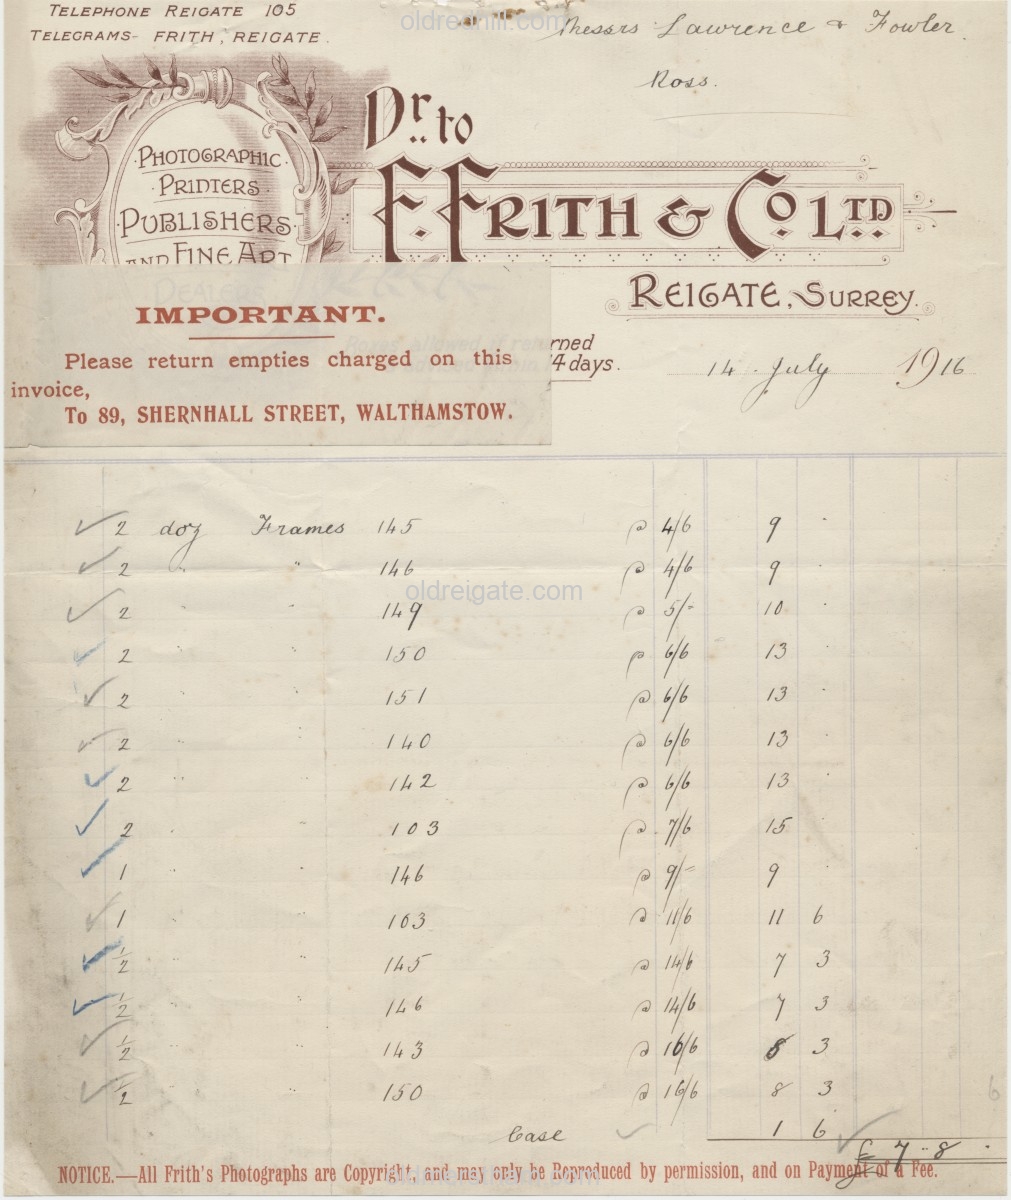 TELEPHONE REIGATE 105
TELEGRAMS- FRITH, REIGATE.
oldredhill.com
Messrs Lawrence & Fowler.
Ross.
Dr. to
PHOTOGRAPHIC
PRINTERS
PUBLISHERS
AND FINE ART
DEALERS
F. FRITH & Co LTD
REIGATE, SURREY.
IMPORTANT.
Please return empties charged on this
invoice,
To 89, SHERNHALL STREET, WALTHAMSTOW.
rned
14 days.
14 July 1916
2 doz Frames 145 @ 4/6 9 .
2 " " 146 @ 4/6 9 .
oldreigate.com
2 " 149 @ 5/- 10 .
2 " " 150 @ 6/6 13 .
2 " " 151 @ 6/6 13 .
2 " " 140 @ 6/6 13 .
2 " " 142 @ 6/6 13 .
2 " " 103 @ 7/6 15 .
1 " " 146 @ 9/- 9 .
1 " " 103 @ 11/6 11 6
1/2 " " 145 @ 14/6 7 3
1/2 " " 146 @ 14/6 7 3
1/2 " " 143 @ 16/6 8 3
1/2 " " 150 @ 16/6 8 3
Case 1 6
£ 7 .. 8 .
NOTICE.—All Frith's Photographs are Copyright, and may only be Reproduced by permission, and on Payment of a Fee.